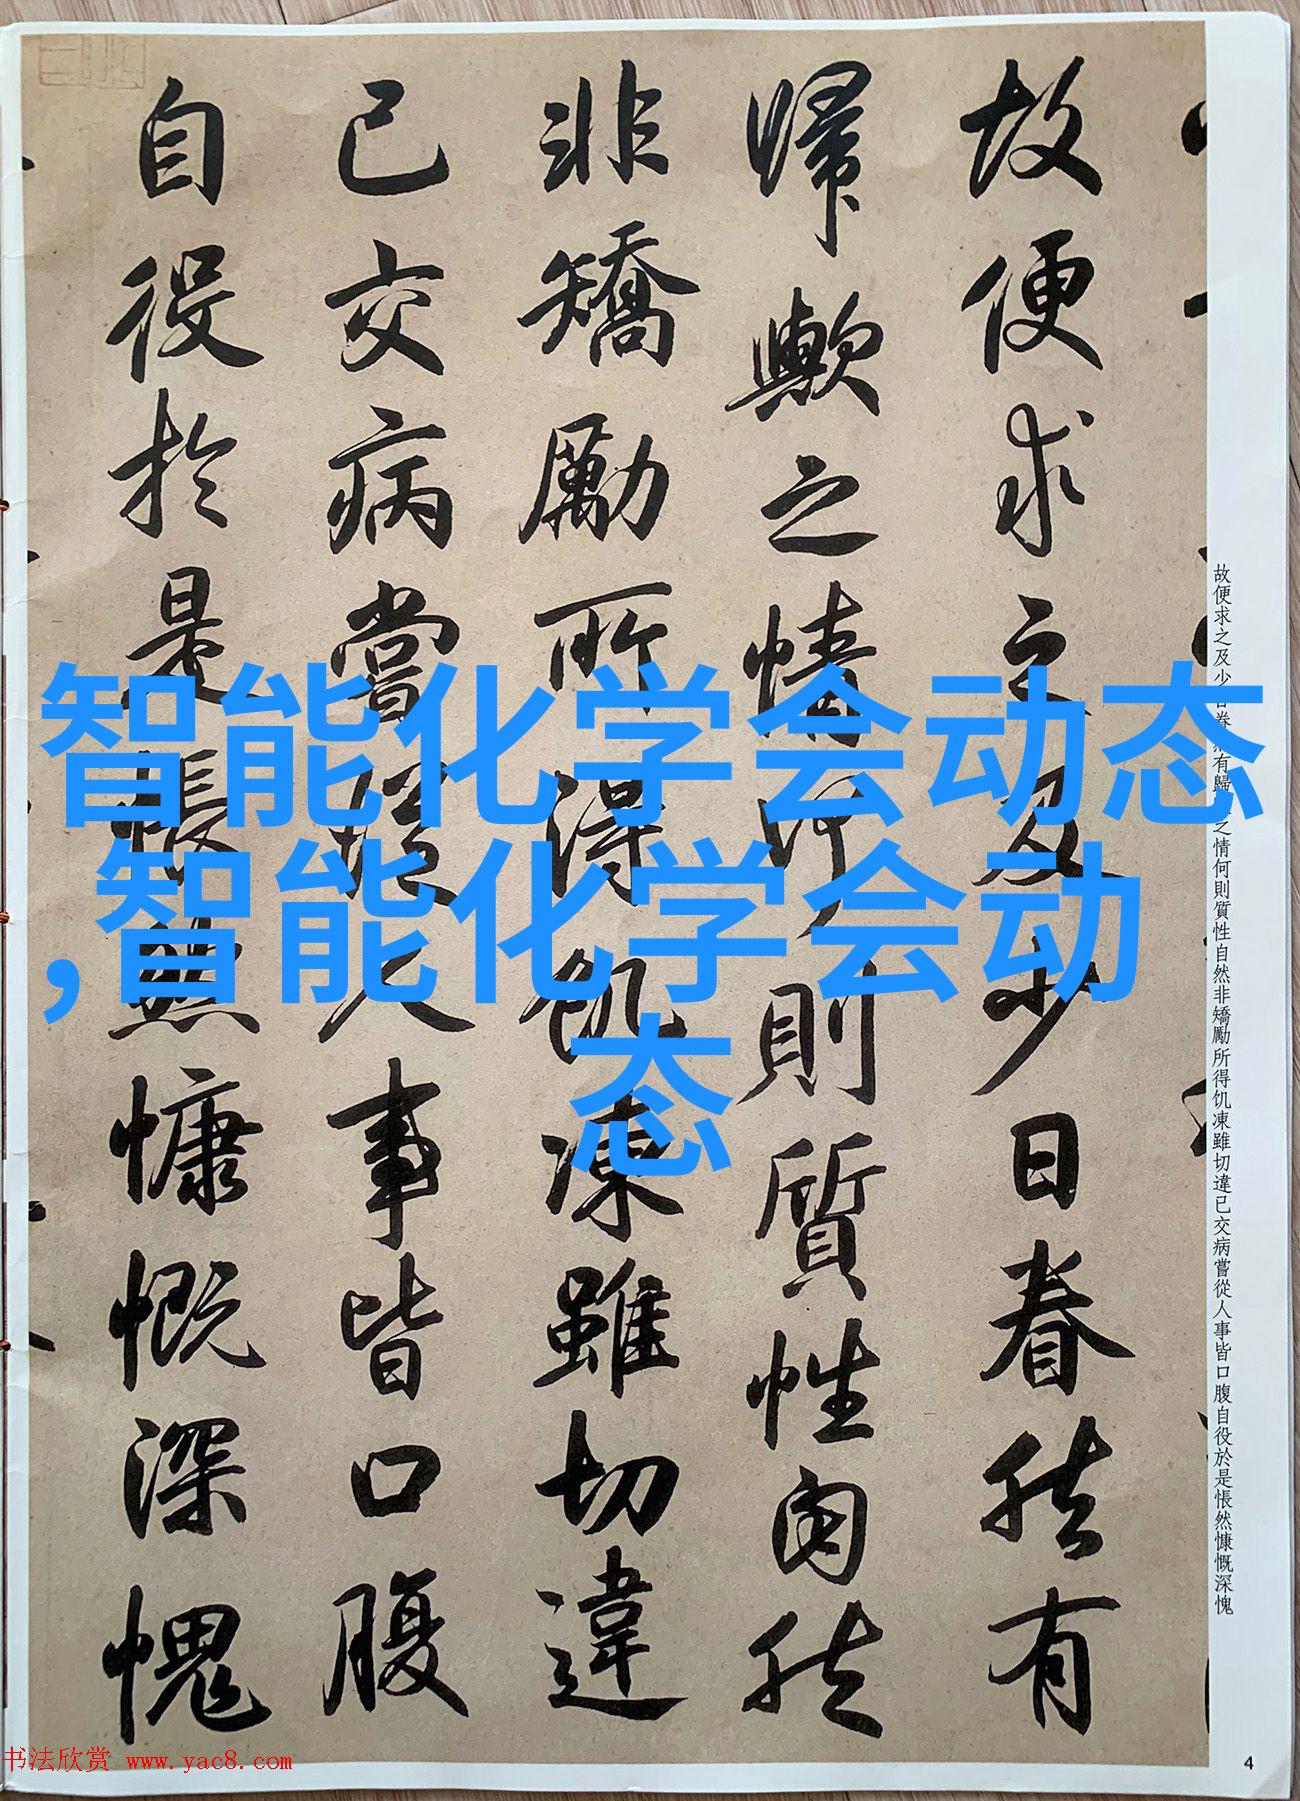 故便求之及少日眷然有
歸歟之情何則質性自然
非矯勵所得饥凍雖切違
已交病嘗從人事皆口腹
自役於是悵然慷慨深愧
故便求之及少日眷然有歸歟之情何則質性自然非矯勵所得饥凍雖切違已交病嘗從人事皆口腹自役於是悵然慷慨深愧
智能化学会动态
,智能化学会动
态
书法欣赏 www.yac8.com
4